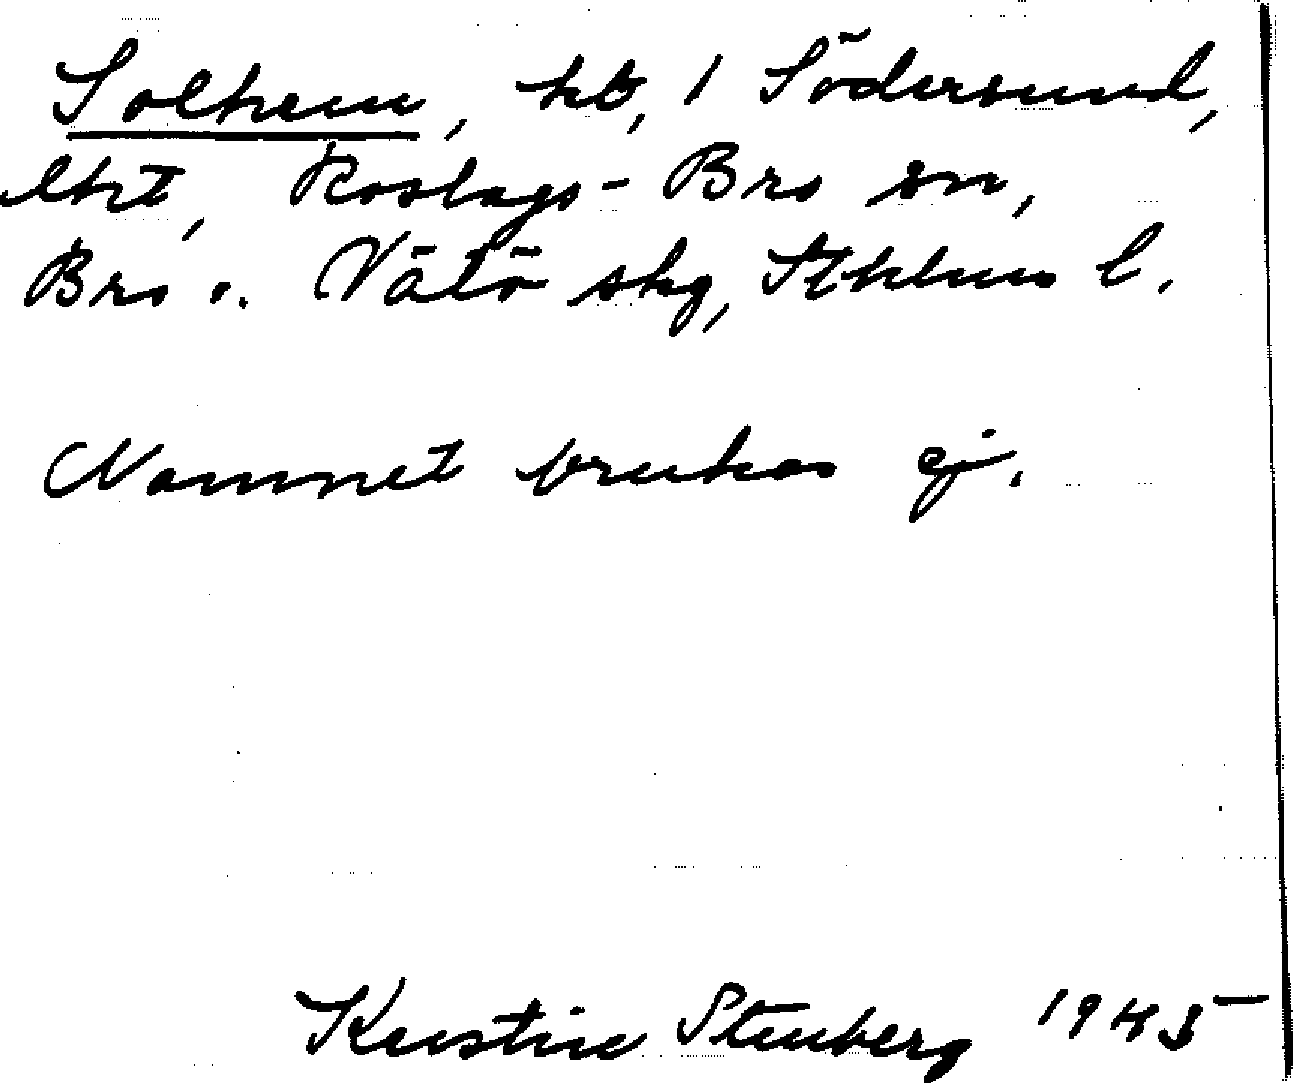 Solhem, hb, 1 Södersund,
lht, Roslags-Bro sn,
Bro o. Vätö skg, Sthlms l.
Namnet brukas ej.
Kerstin Stenberg 1945